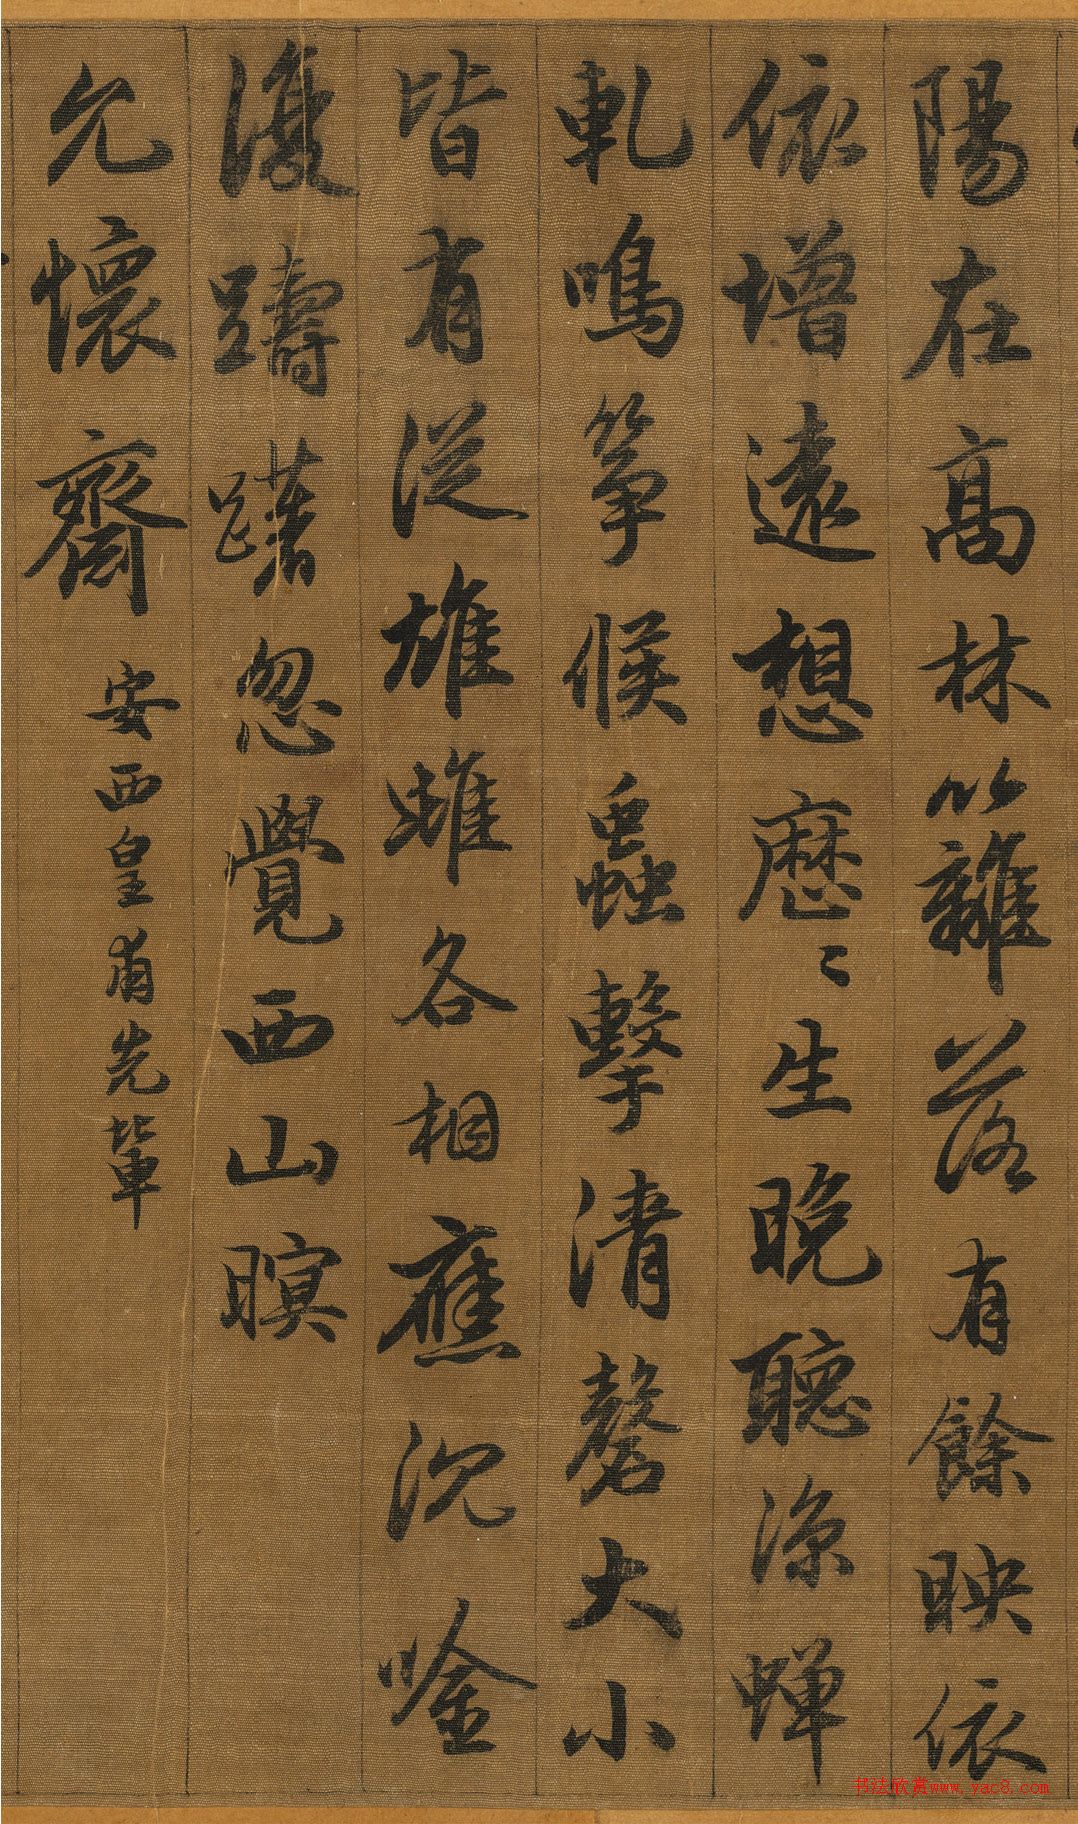 陽在高林籬落有餘映依
依增遠想歷〻生晚聽涼蟬
軋鳴箏候蟲擊清磬大小
皆有從雄雌各相應沉唫
復躊躇忽覺西山暝
允懷齋 安西皇甫先輩
书法欣赏www.yac8.com